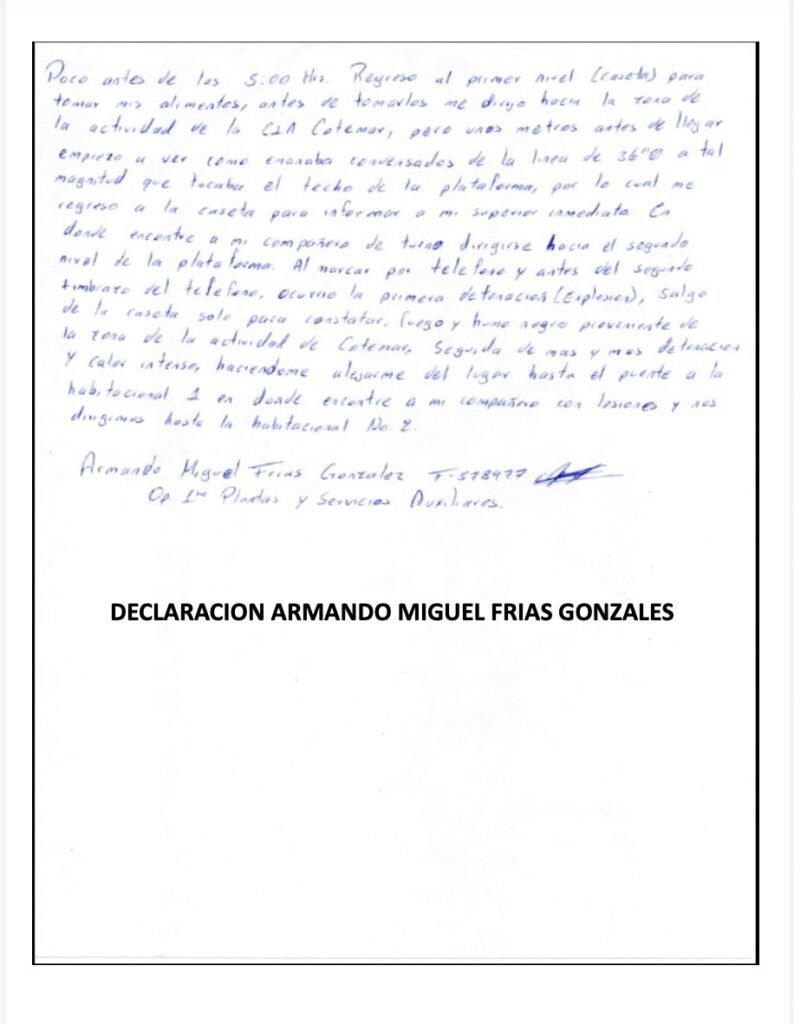 Poco antes de las 5:00 Hrs. Regreso al primer nivel (caseta) para
tomar mis alimentos, antes de tomarlos me dirijo hacia la zona de
la actividad de la CIA Cotemar, pero unos metros antes de llegar
empiezo a ver como emanaba condensados de la linea de 36"Ø a tal
magnitud que tocaba el techo de la plataforma, por lo cual me
regreso a la caseta para informar a mi superior inmediato. En
donde encontre a mi compañero de turno dirigirse hacia el segundo
nivel de la plataforma. Al marcar por telefono y antes del segundo
timbrazo del telefono, ocurrio la primera detonacion (Explosion), salgo
de la caseta solo para constatar, fuego y humo negro proveniente de
la zona de la actividad de Cotemar, Seguida de mas y mas detonacion
y calor intenso, haciendome alejarme del lugar hasta el puente a la
habitacional 1 en donde encontre a mi compañero con lesiones y nos
dirigimos hasta la habitacional No. 2.
Armando Miguel Frias Gonzalez F-578977
Op. 1ra Plantas y Servicios Auxiliares.
DECLARACION ARMANDO MIGUEL FRIAS GONZALES